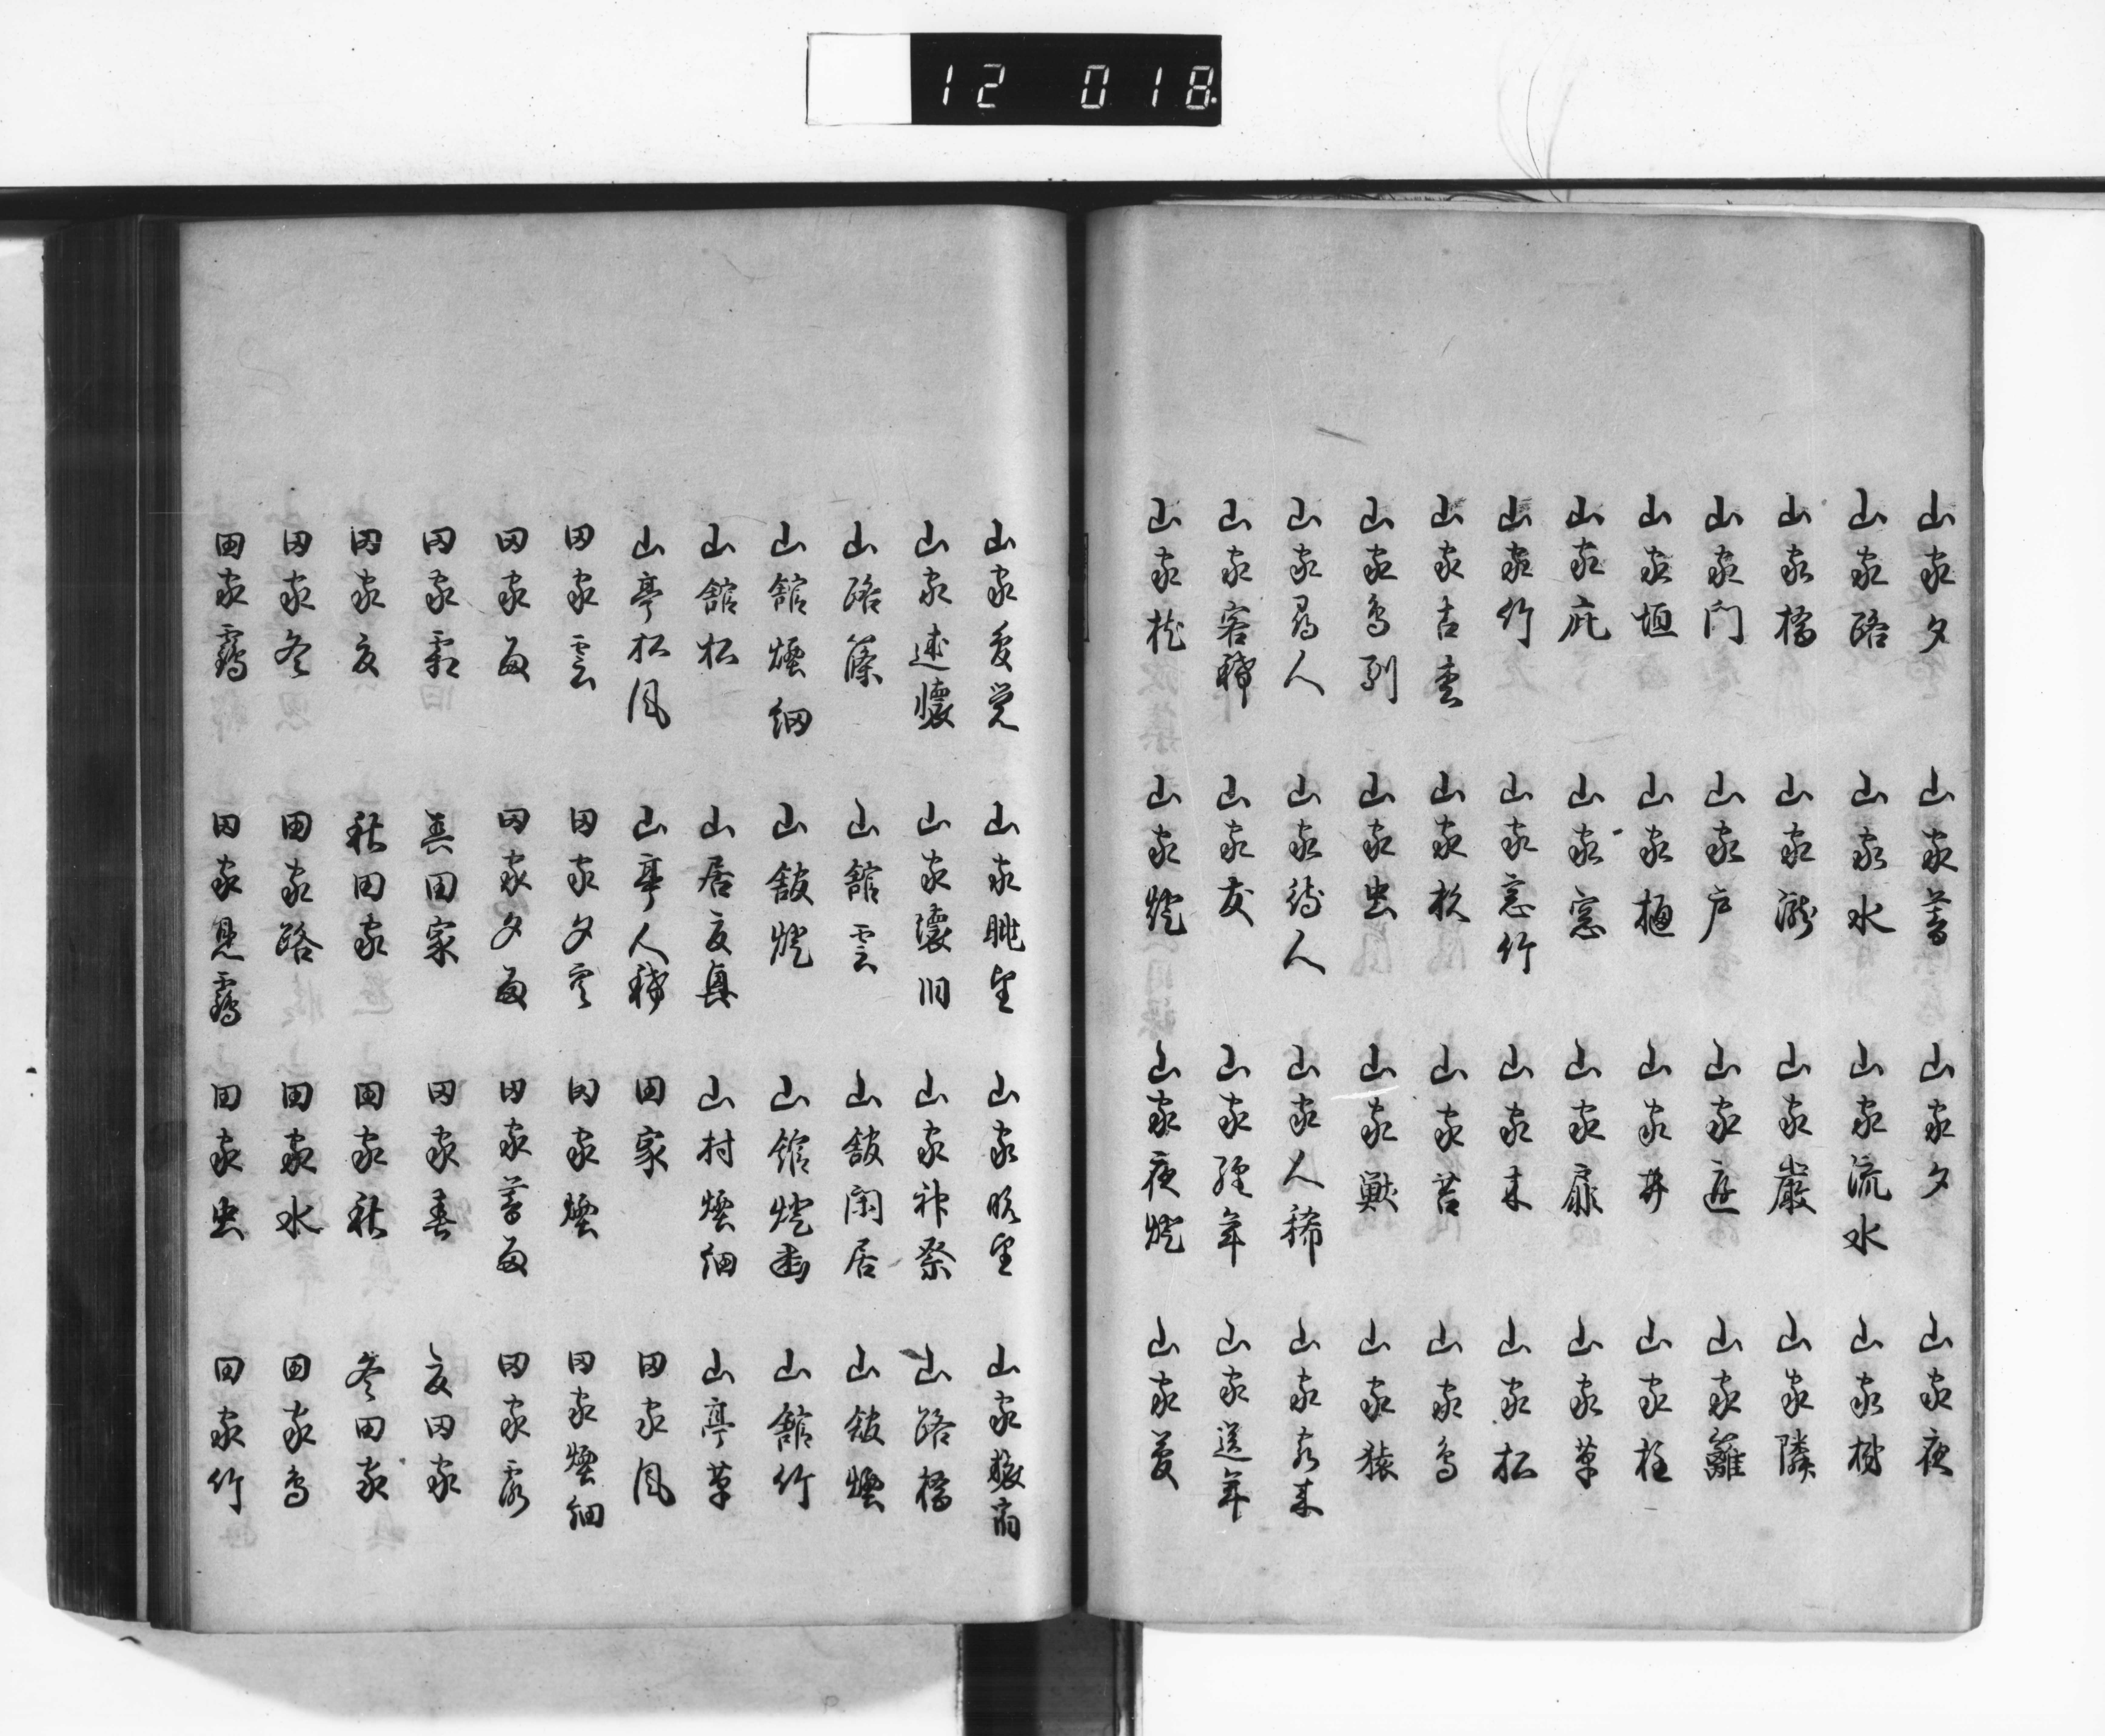 12 018
山家夕 山家暮 山家夕 山家夜
山家路 山家水 山家流水 山家樹
山家橋 山家瀧 山家巌 山家隣
山家門 山家戸 山家庭 山家籬
山家垣 山家樋 山家井 山家柱
山家庇 山家窓 山家扉 山家草
山家竹 山家窓竹 山家 山家松
山家古 山家杉 山家苔 山家鳥
山家鳥列 山家虫 山家獣 山家猿
山家尋人 山家待人 山家人稀 山家
山家客稀 山家友 山家経年 山家送年
山家 山家燈 山家夜燈 山家夢
山家夢覚 山家眺望 山家晩望 山家
山家述懐 山家懐旧 山家神祭 山路橋
山路篠 山館雲 山館閑居 山館煙
山館煙細 山館燈 山館燈幽 山館竹
山館松 山居友真 山村煙細 山亭草
山亭松風 山亭人稀 田家 田家風
田家雲 田家夕雲 田家煙 田家煙細
田家雨 田家夕雨 田家暮雨 田家露
田家霜 春田家 田家春 夏田家
田家夏 秋田家 田家秋 冬田家
田家冬 田家路 田家水 田家鳥
田家鶴 田家見鶴 田家虫 田家竹